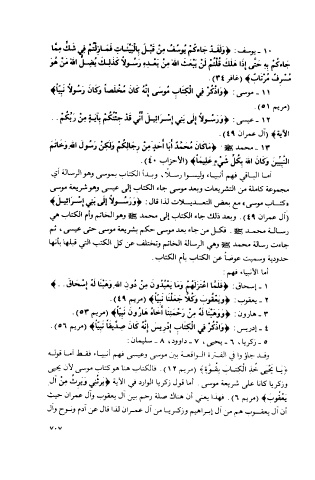 ١٠ - يوسف : ﴿وَلَقَدْ جَاءَكُمْ يُوسُفُ مِنْ قَبْلُ بِالْبَيِّنَاتِ فَمَا زِلْتُمْ فِي شَكٍّ مِمَّا
جَاءَكُمْ بِهِ حَتَّى إِذَا هَلَكَ قُلْتُمْ لَنْ يَبْعَثَ اللهُ مِنْ بَعْدِهِ رَسُولاً كَذَلِكَ يُضِلُّ اللهُ مَنْ هُوَ
مُسْرِفٌ مُرْتَابٌ﴾ (غافر ٣٤).
١١ - موسى : ﴿وَاذْكُرْ فِي الْكِتَابِ مُوسَى إِنَّهُ كَانَ مُخْلَصاً وَكَانَ رَسُولاً نَبِيّاً﴾
(مريم ٥١).
١٢ - عيسى : ﴿وَرَسُولاً إِلَى بَنِي إِسْرَائِيلَ أَنِّي قَدْ جِئْتُكُمْ بِآيَةٍ مِنْ رَبِّكُمْ . .
الآية﴾ (آل عمران ٤٩).
١٣ - محمد ﷺ : ﴿مَا كَانَ مُحَمَّدٌ أَبَا أَحَدٍ مِنْ رِجَالِكُمْ وَلَكِنْ رَسُولَ اللهِ وَخَاتَمَ
النَّبِيِّينَ وَكَانَ اللهُ بِكُلِّ شَيْءٍ عَلِيماً﴾ (الأحزاب ٤٠).
أما الباقي فهم أنبياء وليسوا رسلاً، وبدأ الكتاب بموسى وهو الرسالة أي
مجموعة كاملة من التشريعات وبعد موسى جاء الكتاب إلى عيسى وهو شريعة موسى
«كتاب موسى» مع بعض التعديلات لذا قال: ﴿وَرَسُولاً إِلَى بَنِي إِسْرَائِيلَ﴾
(آل عمران ٤٩). وبعد ذلك جاء الكتاب إلى محمد ﷺ وهو الخاتم وأم الكتاب هي
رسالة محمد ﷺ . فكل من جاء بعد موسى حكم بشريعة موسى حتى عيسى، ثم
جاءت رسالة محمد ﷺ وهي الرسالة الخاتم وتختلف عن كل الكتب التي قبلها بأنها
حدودية وسميت عوضاً عن الكتاب بأم الكتاب.
أما الأنبياء فهم :
١ - إسحاق: ﴿فَلَمَّا اعْتَزَلَهُمْ وَمَا يَعْبُدُونَ مِنْ دُونِ اللهِ وَهَبْنَا لَهُ إِسْحَاقَ . .﴾
٢ - يعقوب: ﴿وَيَعْقُوبَ وَكُلاًّ جَعَلْنَا نَبِيّاً﴾ (مريم ٤٩).
٣ - هارون: ﴿وَوَهَبْنَا لَهُ مِنْ رَحْمَتِنَا أَخَاهُ هَارُونَ نَبِيّاً﴾ (مريم ٥٣)
٤ - إدريس: ﴿وَاذْكُرْ فِي الْكِتَابِ إِدْرِيسَ إِنَّهُ كَانَ صِدِّيقاً نَبِيّاً﴾ (مريم ٥٦).
٥ - زكريا، ٦ - يحيى، ٧ - داوود، ٨ - سليمان:
وقد جاؤوا في الفترة الواقعة بين موسى وعيسى فهم أنبياء فقط أما قوله
﴿يَا يَحْيَى خُذِ الْكِتَابَ بِقُوَّةٍ﴾ (مريم ١٢). فالكتاب هنا هو كتاب موسى لأن يحيى
وزكريا كانا على شريعة موسى. أما قول زكريا الوارد في الآية ﴿يَرِثُنِي وَيَرِثُ مِنْ آلِ
يَعْقُوبَ﴾ (مريم ٦). فهذا يعني أن هناك صلة رحم بين آل يعقوب وآل عمران حيث
أن آل يعقوب هم من آل إبراهيم وزكريا من آل عمران لذا قال عن آدم ونوح وآل
٧٠٧